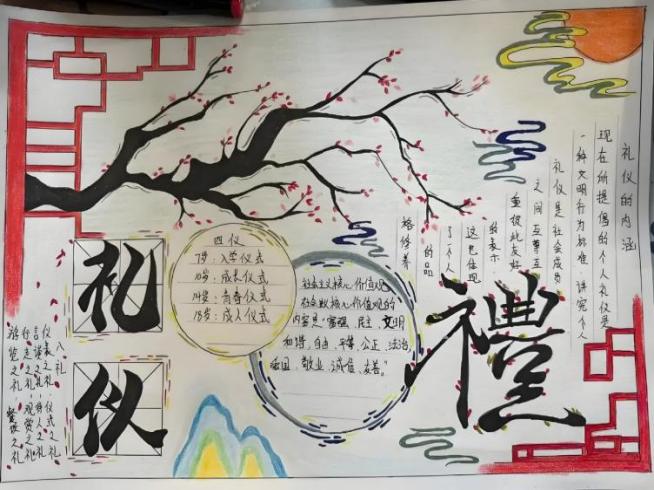 礼仪的内涵
现在所提倡的个人礼仪是
一种文明行为标准,讲究个人
礼仪是社会成员
之间互尊互
重彼此友好
的表示,
这也体现
了一个人
的品
格修养
四仪
7岁:入学仪式
10岁:成长仪式
14岁:青春仪式
18岁:成人仪式
社会主义核心价值观
社会主义核心价值观的
内容是"富强、民主、文明
和谐,自由、平等、公正、法治,
爱国、敬业、诚信、友善。"
禮
礼
仪
八礼
仪表之礼、仪式之礼
言谈之礼、待人之礼
行走之礼、观赏之礼
游览之礼 餐饮之礼